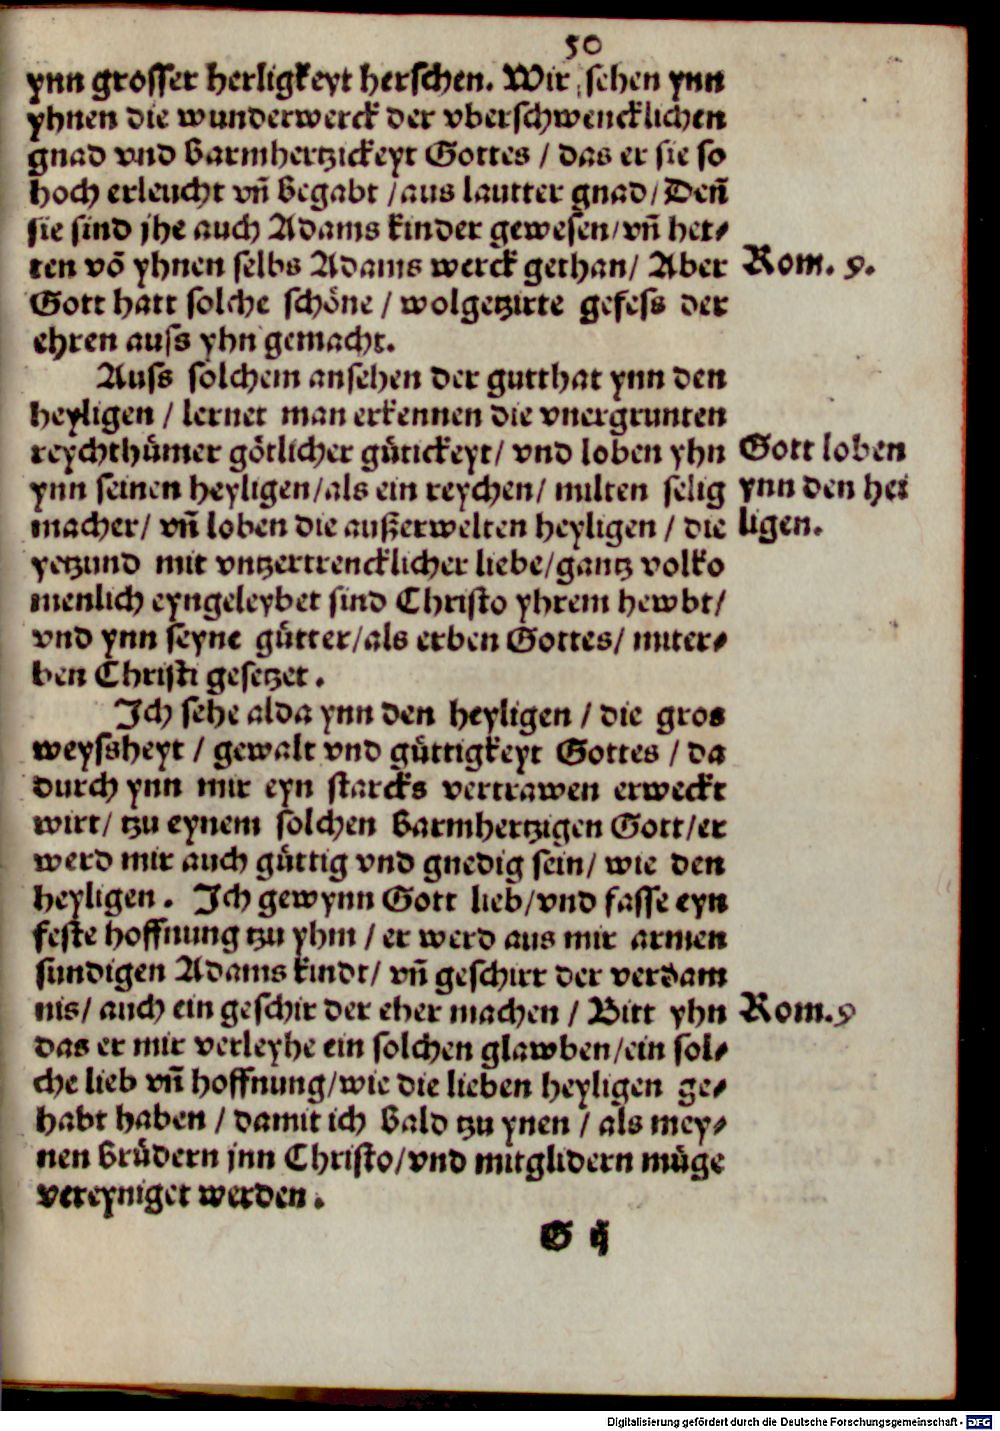 50
ynn grosser herligkeyt herschen. Wir sehen ynn
yhnen die wunderwerck der vberschwencklichen
gnad vnd barmhertzickeyt Gottes / das er sie so
hoch erleucht vñ begabt / aus lautter gnad / Deñ
sie sind jhe auch Adams kinder gewesen / vñ het⸗
ten võ yhnen selbs Adams werck gethan / Aber
Rom. 9.
Gott hatt solche schöne / wolgetzirte gefess der
ehren auss yhn gemacht.
Auss solchem ansehen der gutthat ynn den
heyligen / lernet man erkennen die vnergrunten
reychthümer götlicher gütickeyt / vnd loben yhn
Gott loben
ynn seinen heyligen / als ein reychen / milten selig
ynn den hei
macher / vñ loben die außerwelten heyligen / die
ligen.
yetzund mit vntzertrencklicher liebe / gantz volko
menlich eyngeleybet sind Christo yhrem hewbt /
vnd ynn seyne gütter / als erben Gottes / miter⸗
ben Christi gesetzet.
Ich sehe alda ynn den heyligen / die gros
weyssheyt / gewalt vnd güttigkeyt Gottes / da
durch ynn mir eyn starcks vertrawen erweckt
wirt / tzu eynem solchen barmhertzigen Gott / er
werd mir auch güttig vnd gnedig sein / wie den
heyligen. Ich gewynn Gott lieb / vnd fasse eyn
feste hoffnung tzu yhm / er werd aus mir armen
sundigen Adams kindt / vñ geschirr der verdam
nis / auch ein geschir der eher machen / Bitt yhn
Rom. 9
das er mir verleyhe ein solchen glawben / ein sol⸗
che lieb vñ hoffnung / wie die lieben heyligen ge⸗
habt haben / damit ich bald tzu ynen / als mey⸗
nen brüdern jnn Christo / vnd mitglidern müge
vereyniget werden.
G ij
Digitalisierung gefördert durch die Deutsche Forschungsgemeinschaft - DFG